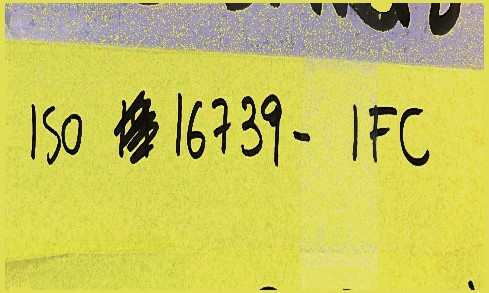 ISO 16739- IFC